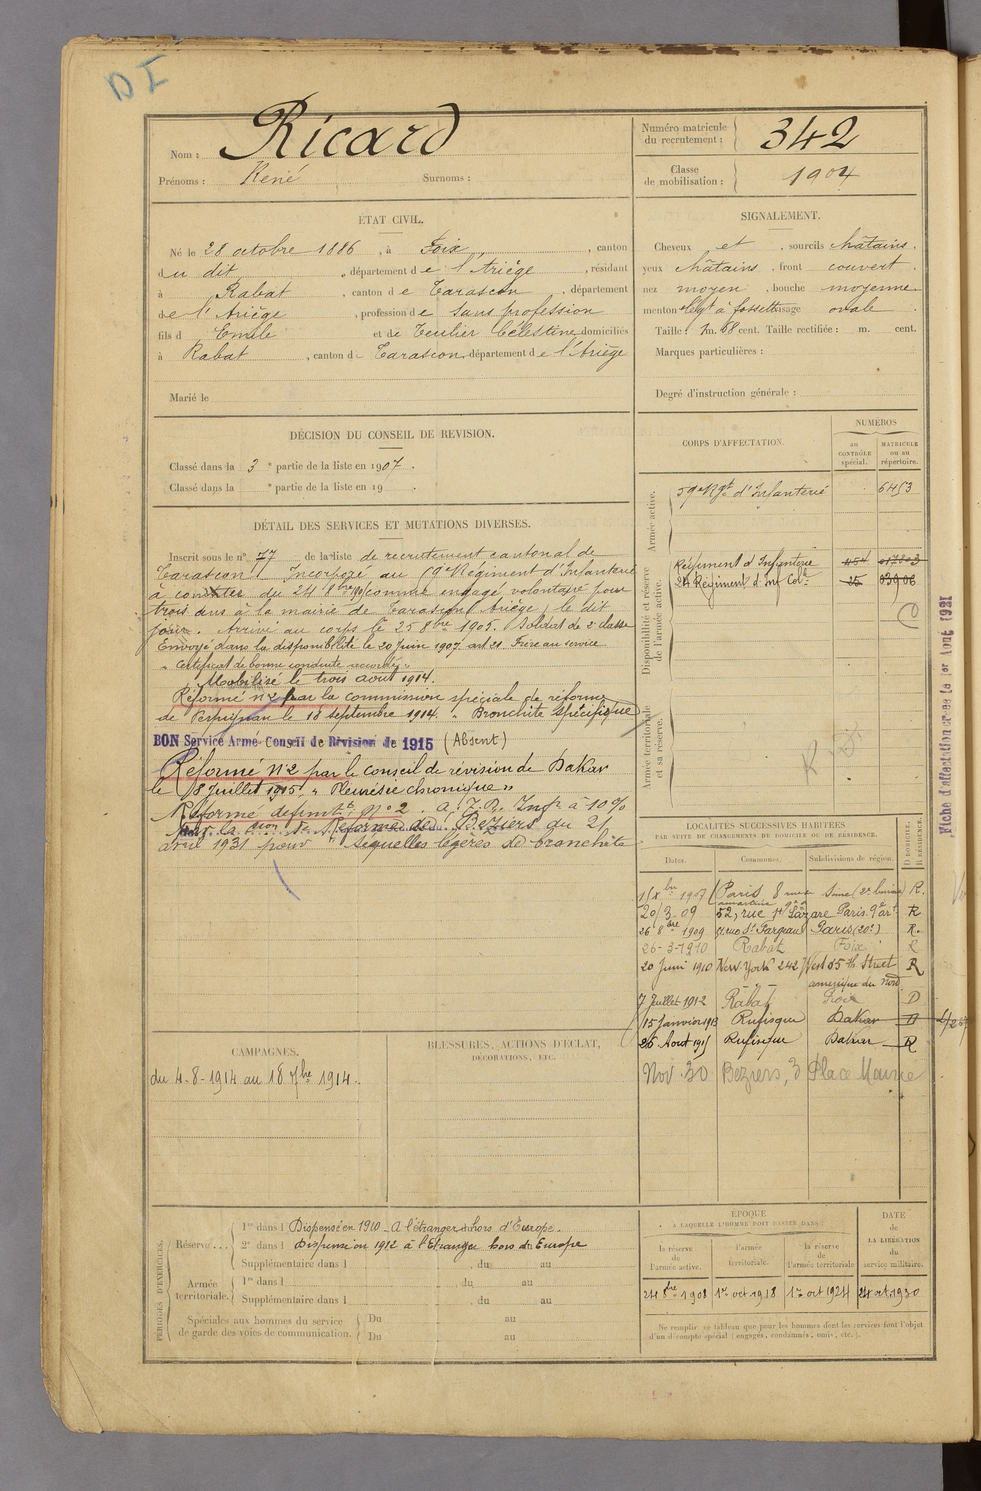 DI
Nom : Ricard
Prénoms : René Surnoms :
Numéro matricule du recrutement : 342
Classe de mobilisation : 1904
ÉTAT CIVIL.
Né le 28 octobre 1886, à Foix, canton
du dit, département de l'Ariège, résidant
à Rabat, canton de Tarascon, département
de l'Ariège, profession de sans profession
fils d Emile et de Teulier Célestine domiciliés
à Rabat, canton de Tarascon, département de l'Ariège
Marié le
SIGNALEMENT.
Cheveux et , sourcils châtains.
yeux châtains, front couvert.
nez moyen, bouche moyenne
menton à fossette visage ovale.
Taille : 1m. 68 cent. Taille rectifiée : m. cent.
Marques particulières :
Degré d'instruction générale :
DÉCISION DU CONSEIL DE REVISION.
Classé dans la 3e partie de la liste en 1907.
Classé dans la e partie de la liste en 19 .
DÉTAIL DES SERVICES ET MUTATIONS DIVERSES.
Inscrit sous le n° 77 de la liste de recrutement cantonal de
Tarascon Incorporé au 59e Régiment d'Infanterie
à compter du 24 8bre 1905 comme engagé volontaire pour
trois ans à la mairie de Tarascon (Ariège) le dit
jour. Arrivé au corps le 25 8bre 1905. Soldat de 2e classe
Envoyé dans la disponibilité le 20 Juin 1907 art 21. Frère au service
" Certificat de bonne conduite accordé "
Mobilisé le trois août 1914.
Réformé n° 2 par la commission spéciale de réforme
de Perpignan le 18 septembre 1914. " Bronchite spécifique "
BON Service Armé Conseil de Révision de 1915 (Absent)
Réformé N°2 par le conseil de révision de Dakar
le 18 Juillet 1915. " Pleurésie chronique "
Réformé définitt N° 2. à 10 %
par la de Réforme de Béziers du 21
avril 1931 pour " Séquelles légères de bronchite
CORPS D'AFFECTATION.
NUMÉROS
au CONTRÔLE spécial.
MATRICULE ou au répertoire.
Armée active.
59e Rgt d'Infanterie 6453
Disponibilité et réserve de l'armée active.
Régiment d'Infanterie 454
24 Régiment d'Inf Cole 25 03906
Armée territoriale et sa réserve.
Fiche d'affectation créée le 1er Aout 1931
LOCALITÉS SUCCESSIVES HABITÉES
PAR SUITE DE CHANGEMENTS DE DOMICILE OU DE RÉSIDENCE.
D DOMICILE, R RÉSIDENCE.
Dates. Communes. Subdivisions de région.
Xbre 1907 Paris 8 rue Seine R.
20/3-09 52, rue St Lazare Paris 9e art R
26 8bre 1909 rue St Fargeau Paris (20e) R.
26-3-1910 Rabat Foix R
20 Juin 1910 New-York 242 West 55 th Street R
amérique du Nord
7 Juillet 1912 Rabat Foix D
15 Janvier 1913 Rufisque Dakar D
26 Aout 1915 Rufisque Dakar R
Nov. 30 Béziers, 3 Place Mairie
CAMPAGNES.
du 4-8-1914 au 18 7bre 1914.
BLESSURES, ACTIONS D'ÉCLAT,
DÉCORATIONS, ETC.
PÉRIODES D'EXERCICES.
Réserve.... 1re dans l Dispensé en 1910 - A l'étranger hors d'Europe.
2e dans l Dispense en 1912 à l'Etranger hors de Europe
Supplémentaire dans l , du au
Armée territoriale. 1re dans l du au
Supplémentaire dans l , du au
Spéciales aux hommes du service de garde des voies de communication. Du au
Du au
ÉPOQUE
À LAQUELLE L'HOMME DOIT PASSER DANS :
DATE de LA LIBÉRATION du service militaire.
la réserve de l'armée active.
l'armée territoriale.
la réserve de l'armée territoriale
24 8bre 1908 1er oct 1918 1er oct 1924 24 oct 1930
Ne remplir ce tableau que pour les hommes dont les services font l'objet
d'un décompte spécial (engagés, condamnés, omis, etc.).